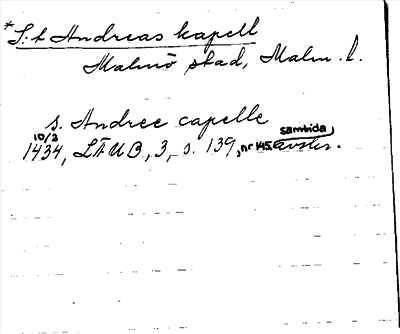 *S:t Andreas kapell
Malmö stad, Malm. l.
s. Andree capelle
10/2
1434, LÄUB, 3, s. 139, nr 145. samtida avskr.